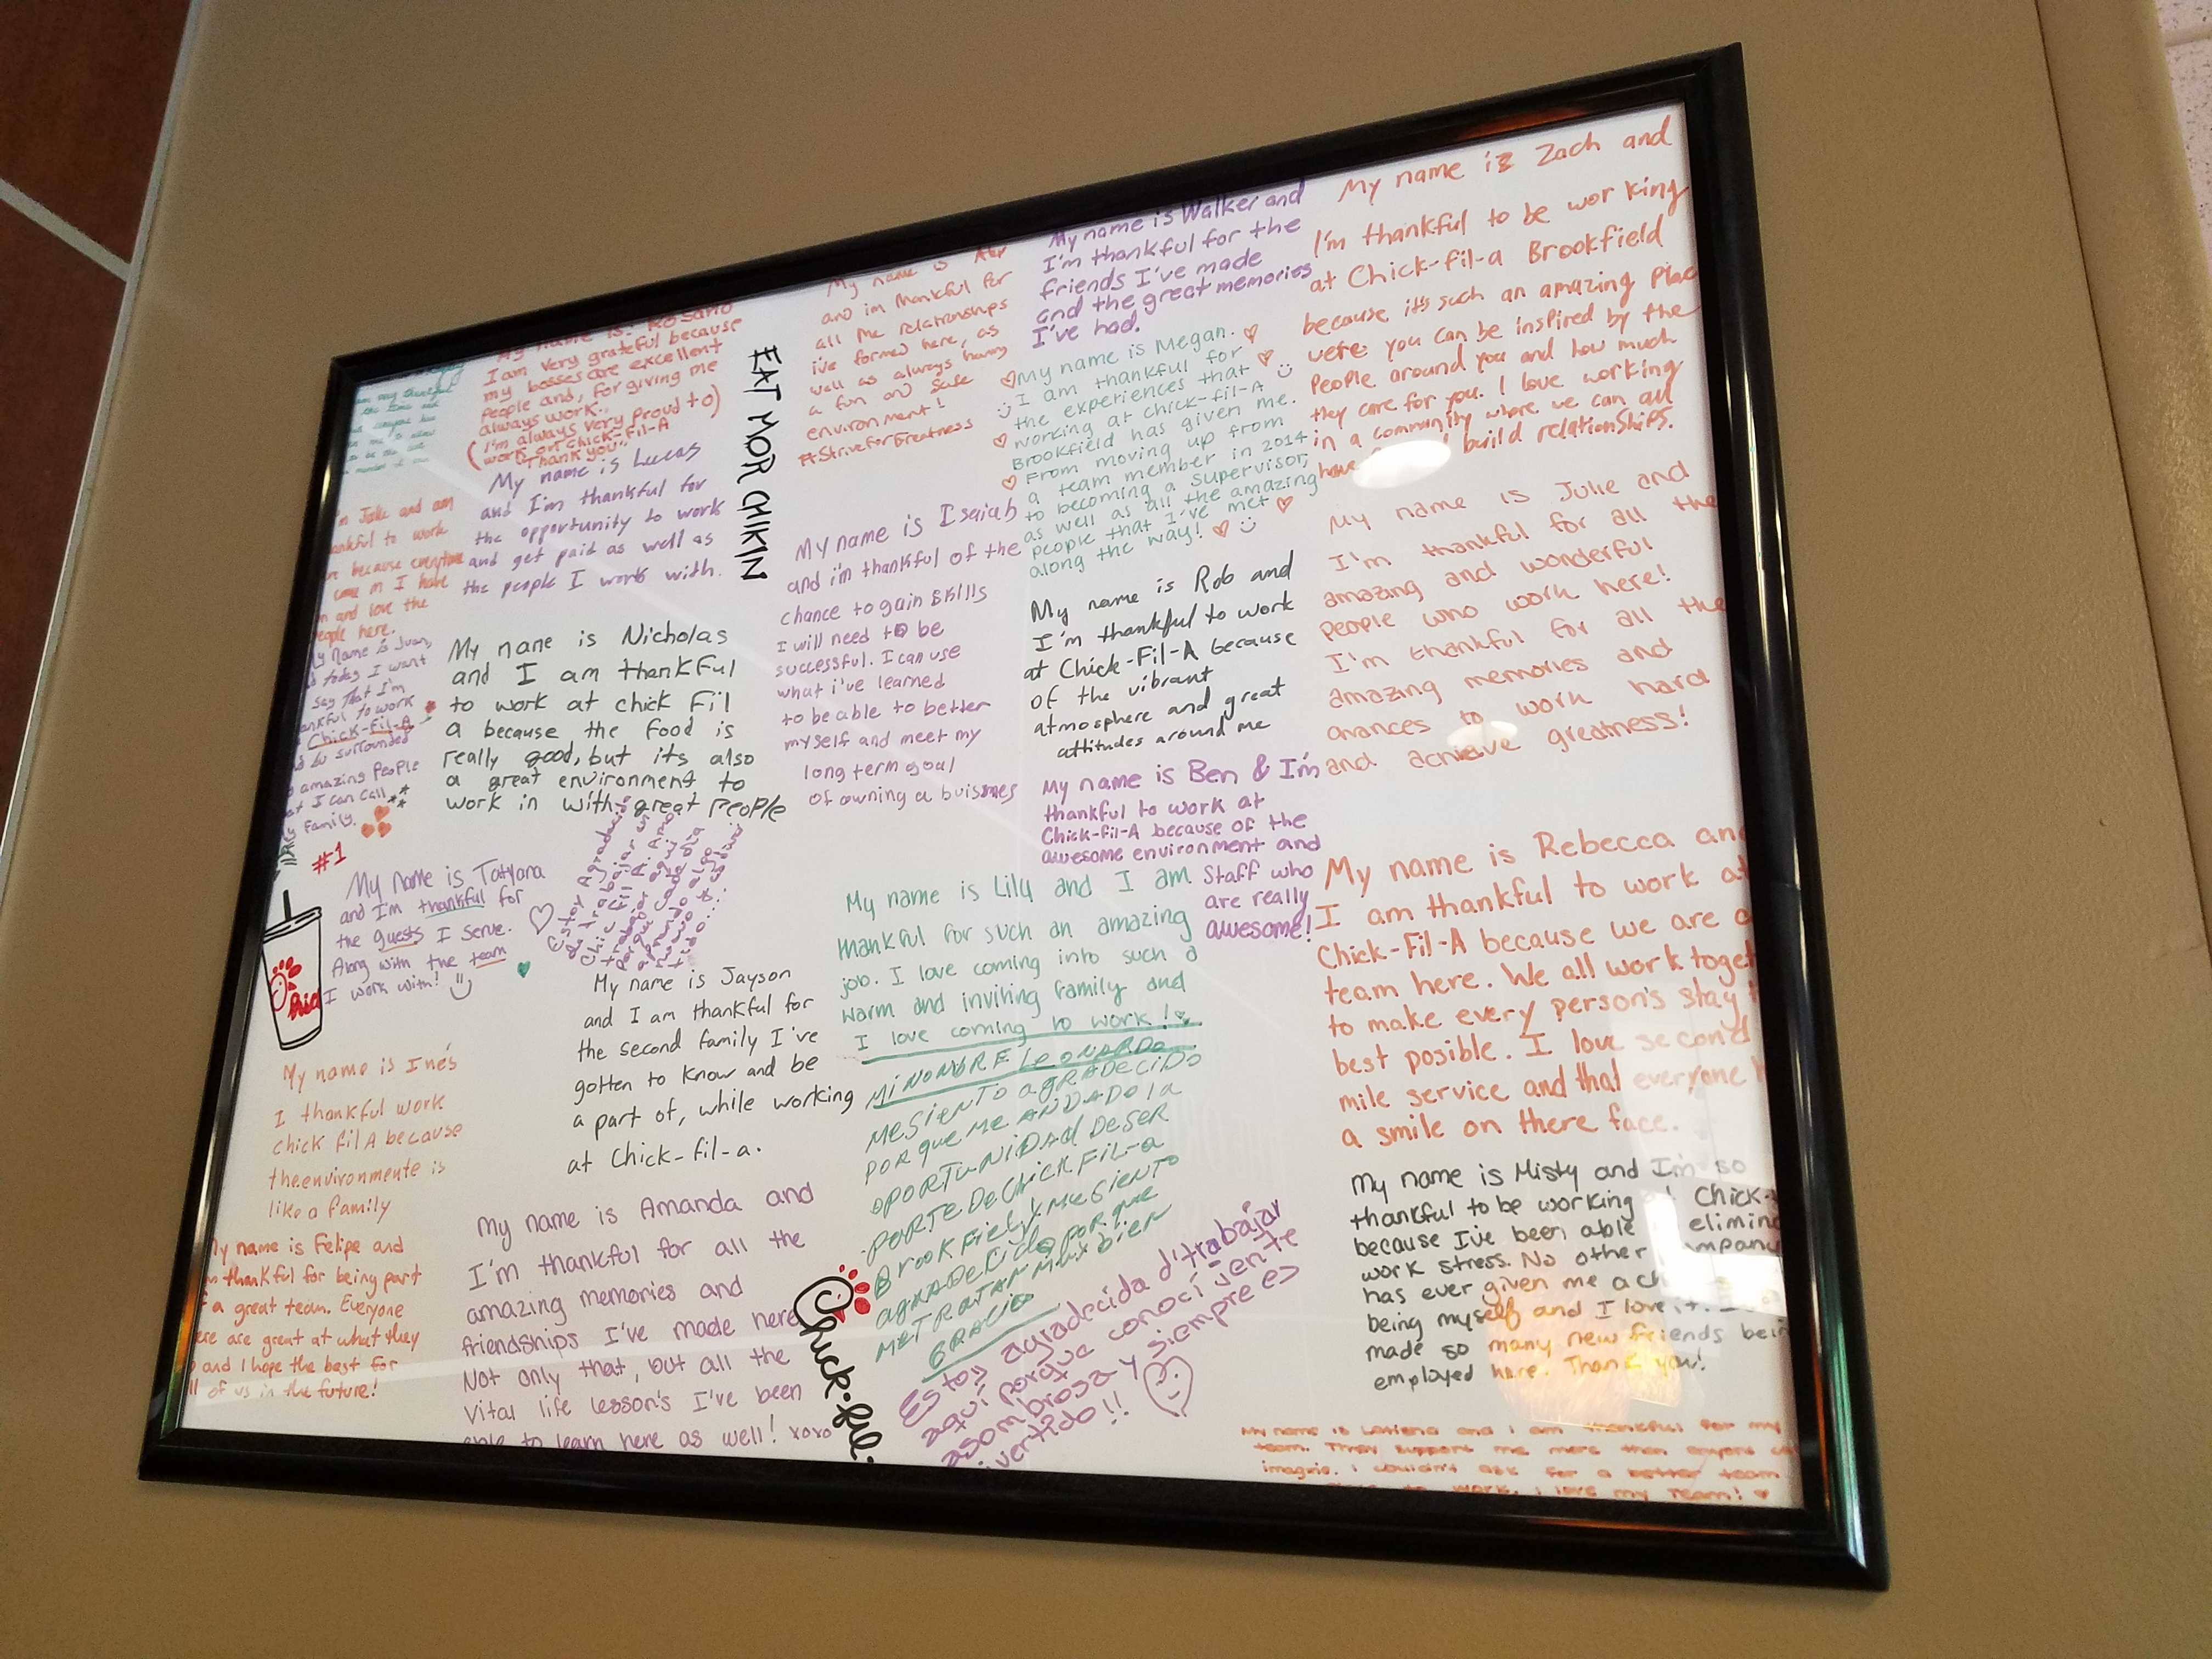 My name is Rosario
I am very grateful because
my bosses are excellent
people and, for giving me
always work..
(I'm always very proud to)
work at Chick-Fil-A
"Thank you"
My name is Lucas
and I'm thankful for
the opportunity to work
and get paid as well as
the people I work with.
I'm Jake and am
thankful to work
because everytime
come in I have
and love the
people here.
My name is Juan,
today I want
say that I'm
thankful to work
Chick-Fil-A
surrounded
amazing people
I can call
my family.
#1
My name is Nicholas
and I am thankful
to work at chick Fil
a because the food is
really good, but its also
a great environment to
work in with great people
EAT MOR CHIKIN
My name is
and im thankful for
all the relationships
i've formed here, as
well as always having
a fun and safe
environment!
#StriveforGreatness
My name is Isaiah
and i'm thankful of the
chance to gain skills
I will need to be
successful. I can use
what i've learned
to be able to better
myself and meet my
long term goal
of owning a
My name is Walker and
I'm thankful for the
friends I've made
and the great memories
I've had.
My name is Megan.
I am thankful for
the experiences that
working at chick-fil-A
Brookfield has given me.
From moving up from
a team member in 2014
to becoming a supervisor,
as well as all the amazing
people that I've met
along the way!
My name is Rob and
I'm thankful to work
at Chick-Fil-A because
of the vibrant
atmosphere and great
attitudes around me
My name is Ben & I'm
thankful to work at
Chick-fil-A because of the
awesome environment and
Staff who
are really
awesome!
My name is Zach and
I'm thankful to be working
at Chick-fil-a Brookfield
because it's such an amazing
you can be inspired by the
people around you and how much
they care for you. I love working
in a community where we can all
have build relationships.
My name is Julie and
I'm thankful for all the
amazing and wonderful
people who work here!
I'm thankful for all the
amazing memories and
chances to work hard
and achieve greatness!
My name is Tatyana
and I'm thankful for
the guests I serve.
Along with the team
I work with!
Estoy Agradecid
My name is Jayson
and I am thankful for
the second family I've
gotten to know and be
a part of, while working
at Chick-fil-a.
My name is Lily and I am
thankful for such an amazing
job. I love coming into such a
warm and inviting family and
I love coming to work!
MI NOMBRE LEONARDO
ME SIENTO AGRADECIDO
PORQUE ME AN DADO la
OPORTUNIDAD DE SER
PORTE DE CHICK FIL-a
BrookField y ME SIENTO
AGRADECIDO PORQUE
ME TRATAN MUY bien
GRACIAS
My name is Rebecca and
I am thankful to work at
Chick-Fil-A because we are a
team here. We all work
to make every person's stay
best posible. I love second
mile service and that everyone
a smile on there face.
My name is Inés
I thankful work
chick fil A because
the environmente is
like a family
My name is Felipe and
thankful for being part
of a great team. Everyone
here are great at what they
and I hope the best for
all of us in the future!
My name is Amanda and
I'm thankful for all the
amazing memories and
friendships I've made here
Not only that, but all the
vital life lesson's I've been
able to learn here as well! xoxo
Chick-fil
Estoy agradecida d'trabajar
aquí porque conocí gente
asombrosa y siempre es
divertido!!
My name is Misty and I'm so
thankful to be working Chick-
because I've been able
work stress. No other company
has ever given me a
being myself and I love it.
made so many new friends being
employed here! Thank you!
My name is and I am thankful for my
team. They support me more than anyone
imagine. I couldn't ask for a better team
to work. I love my team!